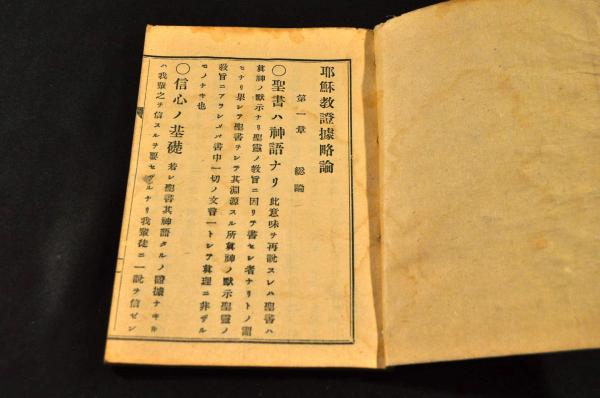 耶穌教證據略論
第一章　総論
〇聖書ハ神語ナリ 此意味ヲ再説スレハ聖書ハ
眞神ノ默示ナリ聖靈ノ教旨ニ因リテ書セシ者ナリトノ謂
ヒナリ果シテ聖書ヲシテ其淵源スル所眞神ノ默示聖靈ノ
教旨ニアラシメバ書中一切ノ文書一トシテ眞理ニ非ザル
モノナキ也
〇信心ノ基礎 若シ聖書其神語タルノ證據ナキ
ハ我輩之ヲ信スルヲ要セザルナリ我輩徒ニ一説ヲ信ゼン